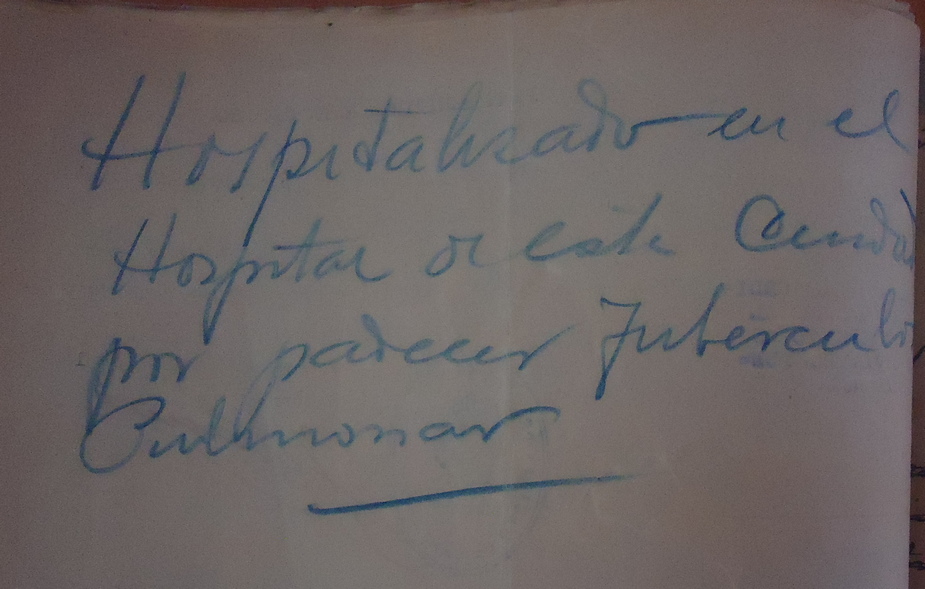 Hospitalizado en el
Hospital de este
por padecer Tuberculo
Pulmonar